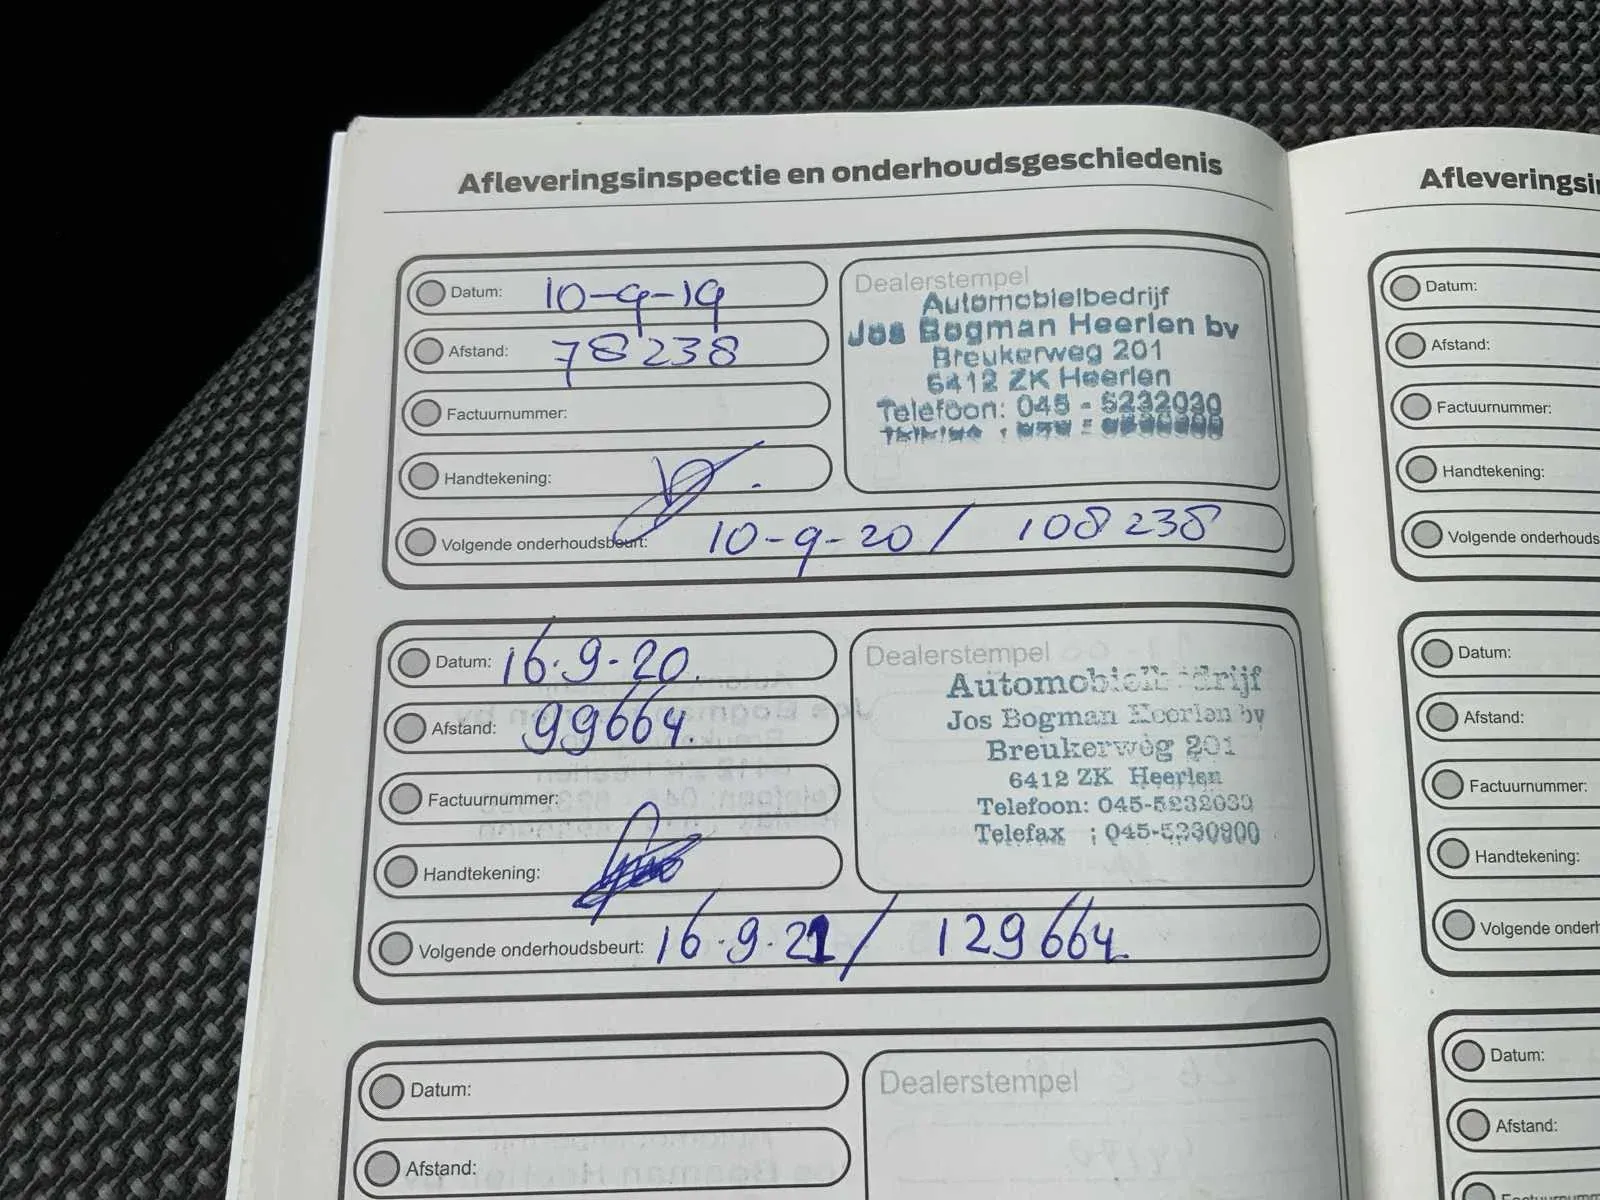 Afleveringsinspectie en onderhoudsgeschiedenis
Datum: 10-9-19
Afstand: 78238
Factuurnummer:
Handtekening:
Volgende onderhoudsbeurt: 10-9-20 / 108238
Dealerstempel
Automobielbedrijf
Jos Bogman Heerlen bv
Breukerweg 201
6412 ZK Heerlen
Telefoon: 045 - 5232030
Datum: 16.9.20.
Afstand: 99664
Factuurnummer:
Handtekening:
Volgende onderhoudsbeurt: 16.9.21 / 129664
Dealerstempel
Jos Bogman Heerlen bv
Breukerweg 201
6412 ZK Heerlen
Telefoon: 045-5232030
Telefax : 045-5230900
Datum:
Afstand:
Dealerstempel
Datum:
Afstand:
Factuurnummer:
Handtekening:
Datum:
Afstand:
Factuurnummer:
Handtekening:
Volgende
Datum:
Afstand: